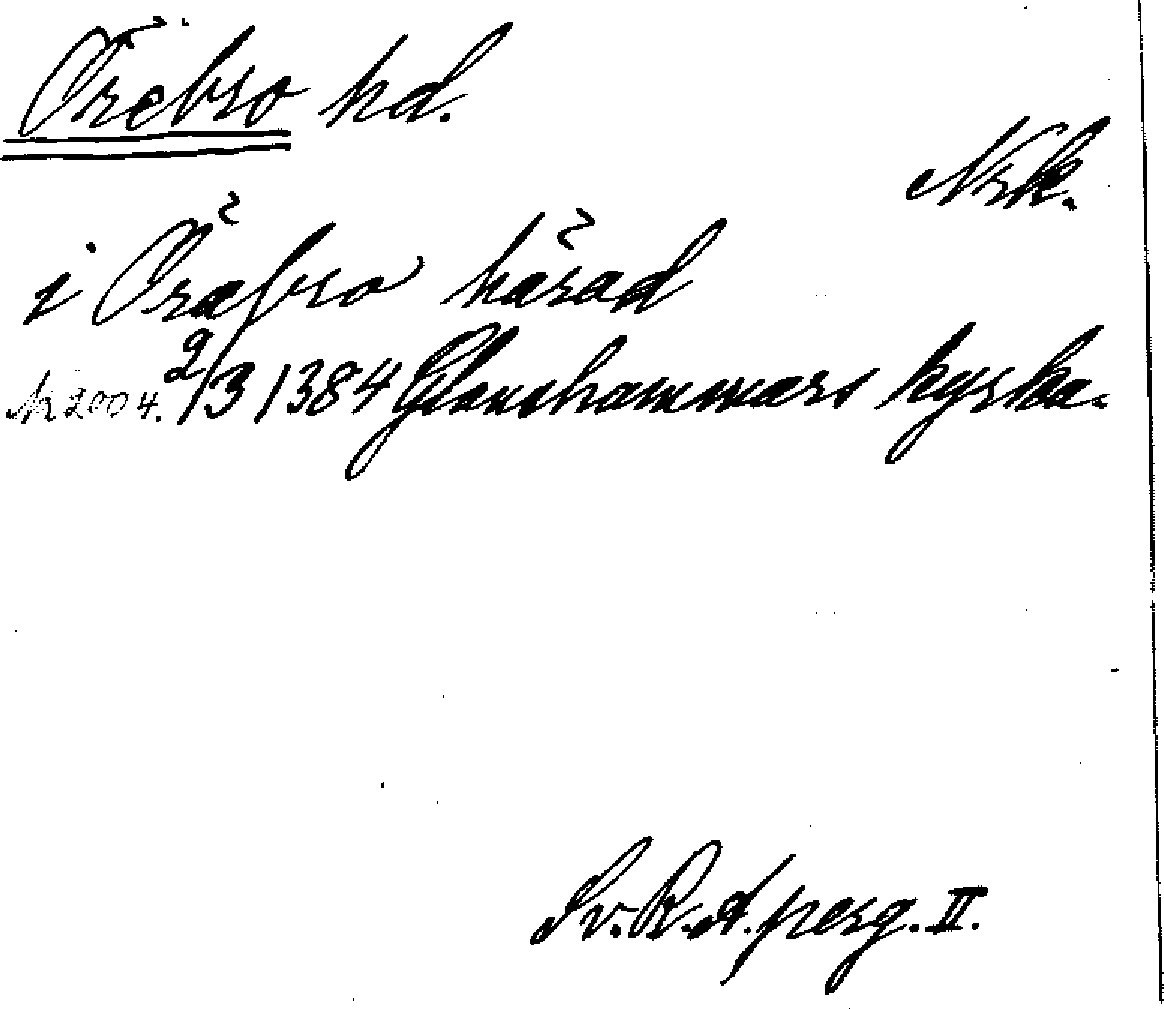 Örebro hd.
Nrk.
i Öræbro härad
N 2004. 2/3 1384 Glanshammars kyrka.
Sv. R. A. perg. II.